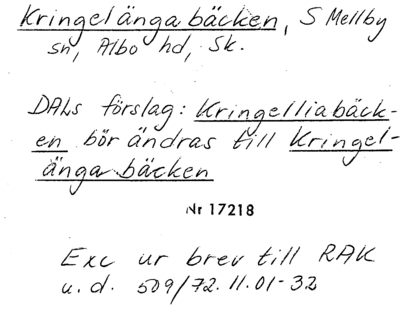 Kringelängabäcken, S Mellby
sn, Albo hd, Sk.
DALs förslag: Kringelliabäck-
en bör ändras till Kringel-
ängabäcken
Nr 17218
Exc ur brev till RAK
u.d. 509/72.11.01-32